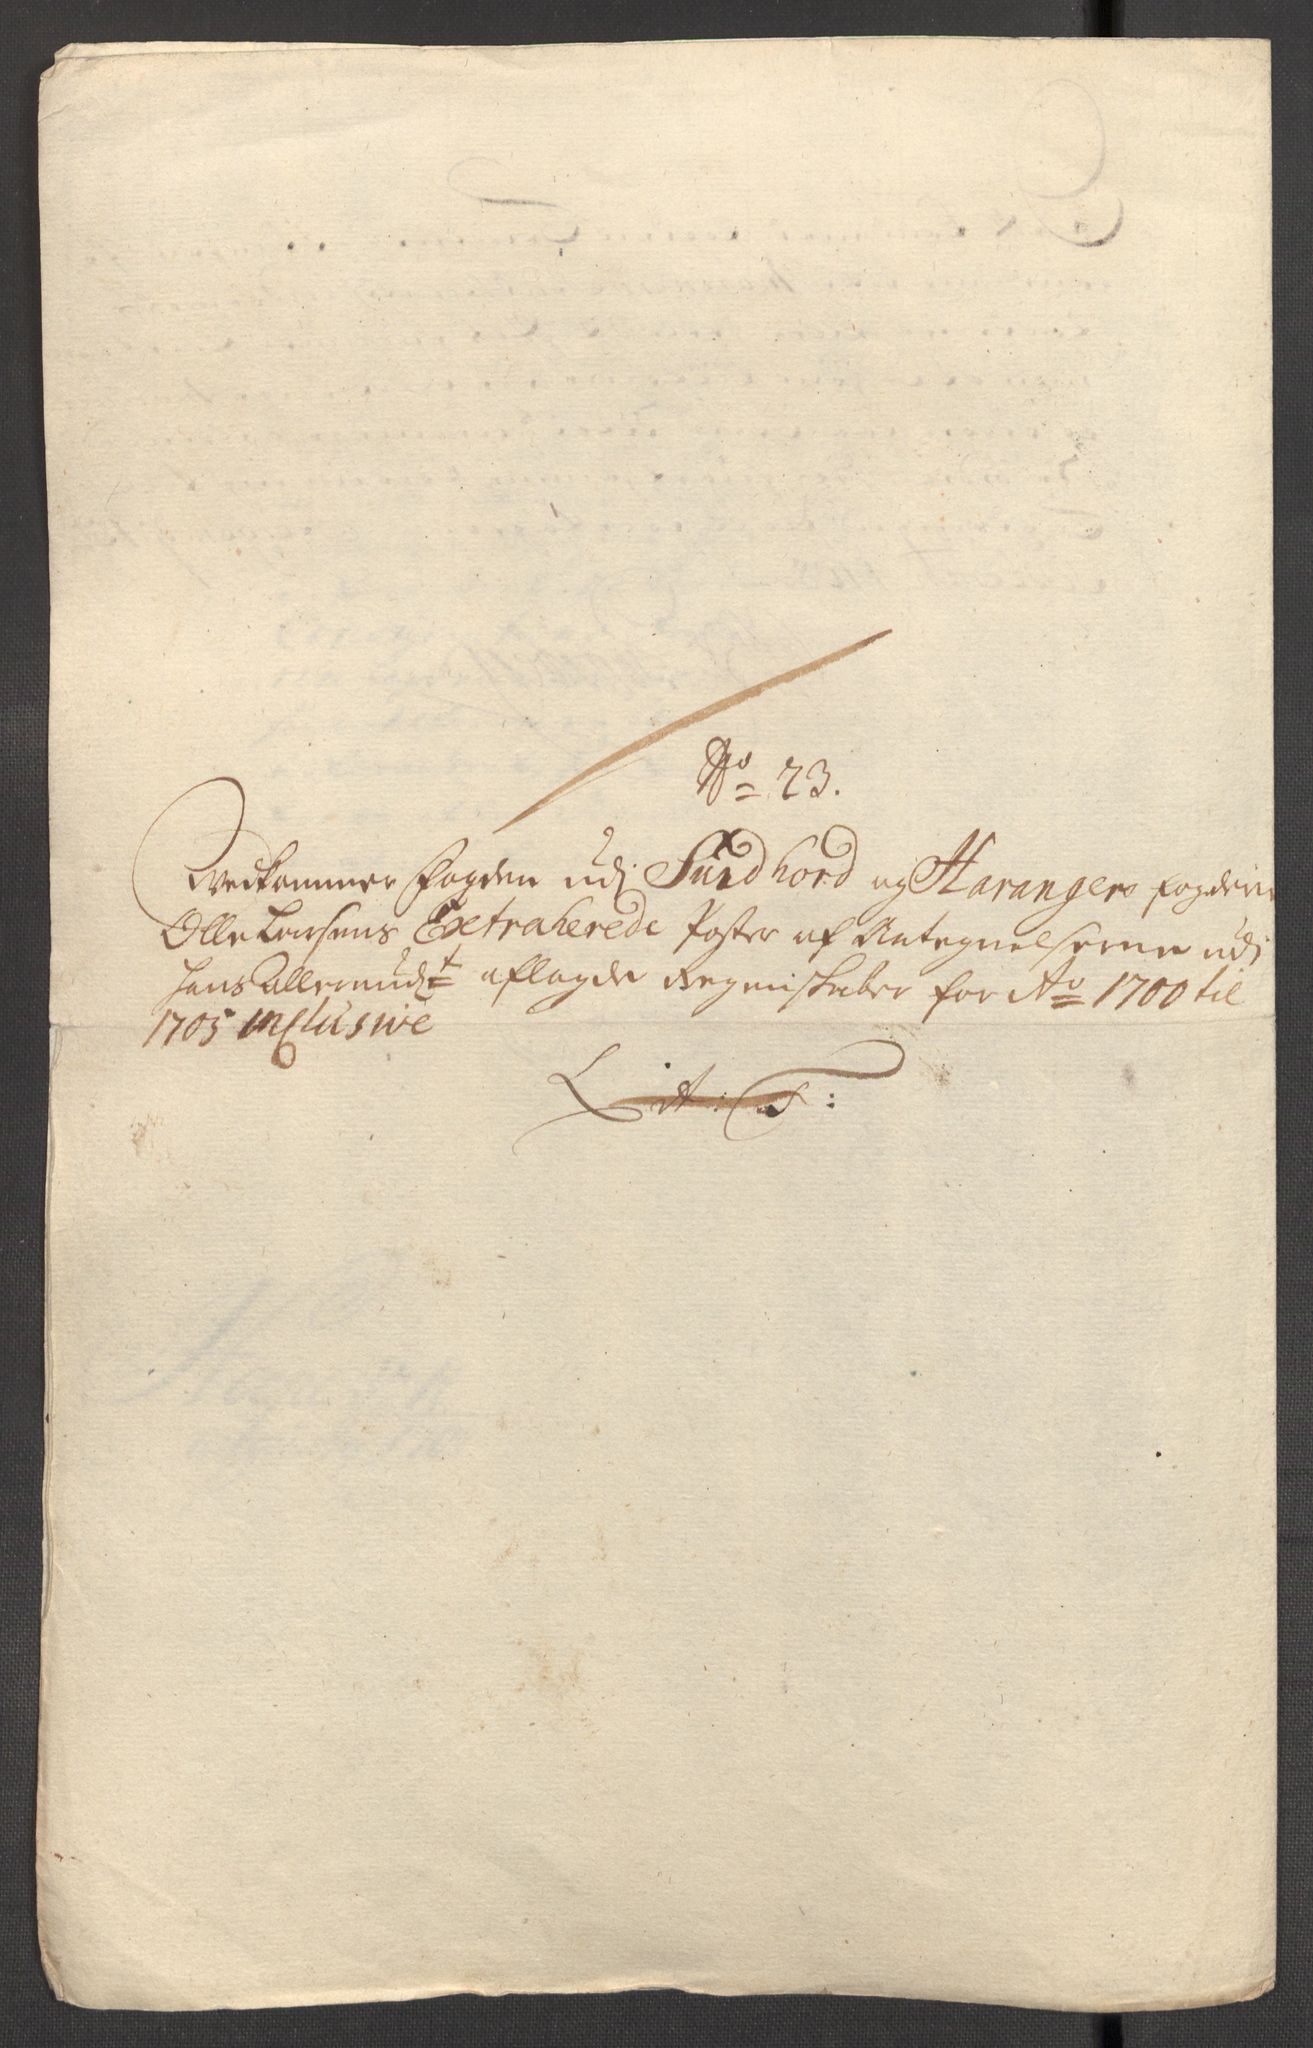 No 23.
Vedkommer fogden udj Sundhord og Harangers fogderie
Olle Larsens Extraherede Poster af Antegnelserne udj
hans allerund:t aflagde Regenskaber for Ao 1700 til
1705 inclusive
Lit: F: